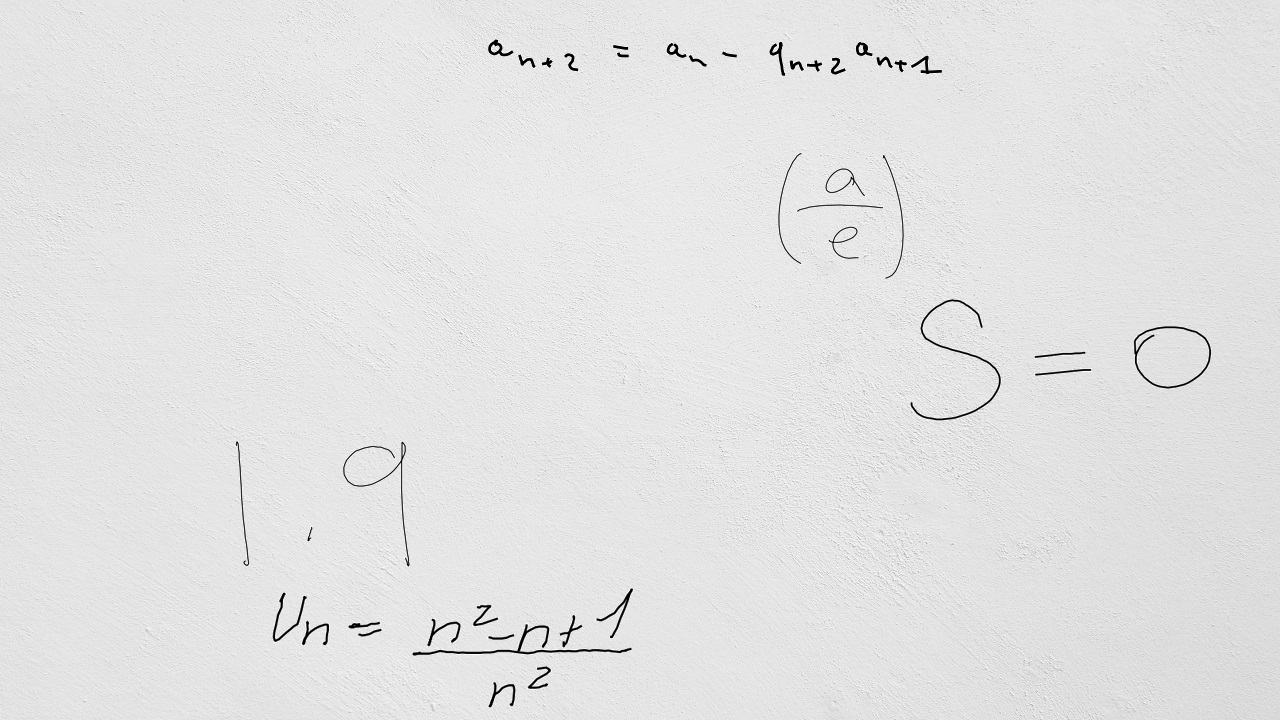 a_{n+2} = a_n - q_{n+2} a_{n+1}
(a/e)
S = 0
1.9
U_n = (n^2-n+1)/n^2